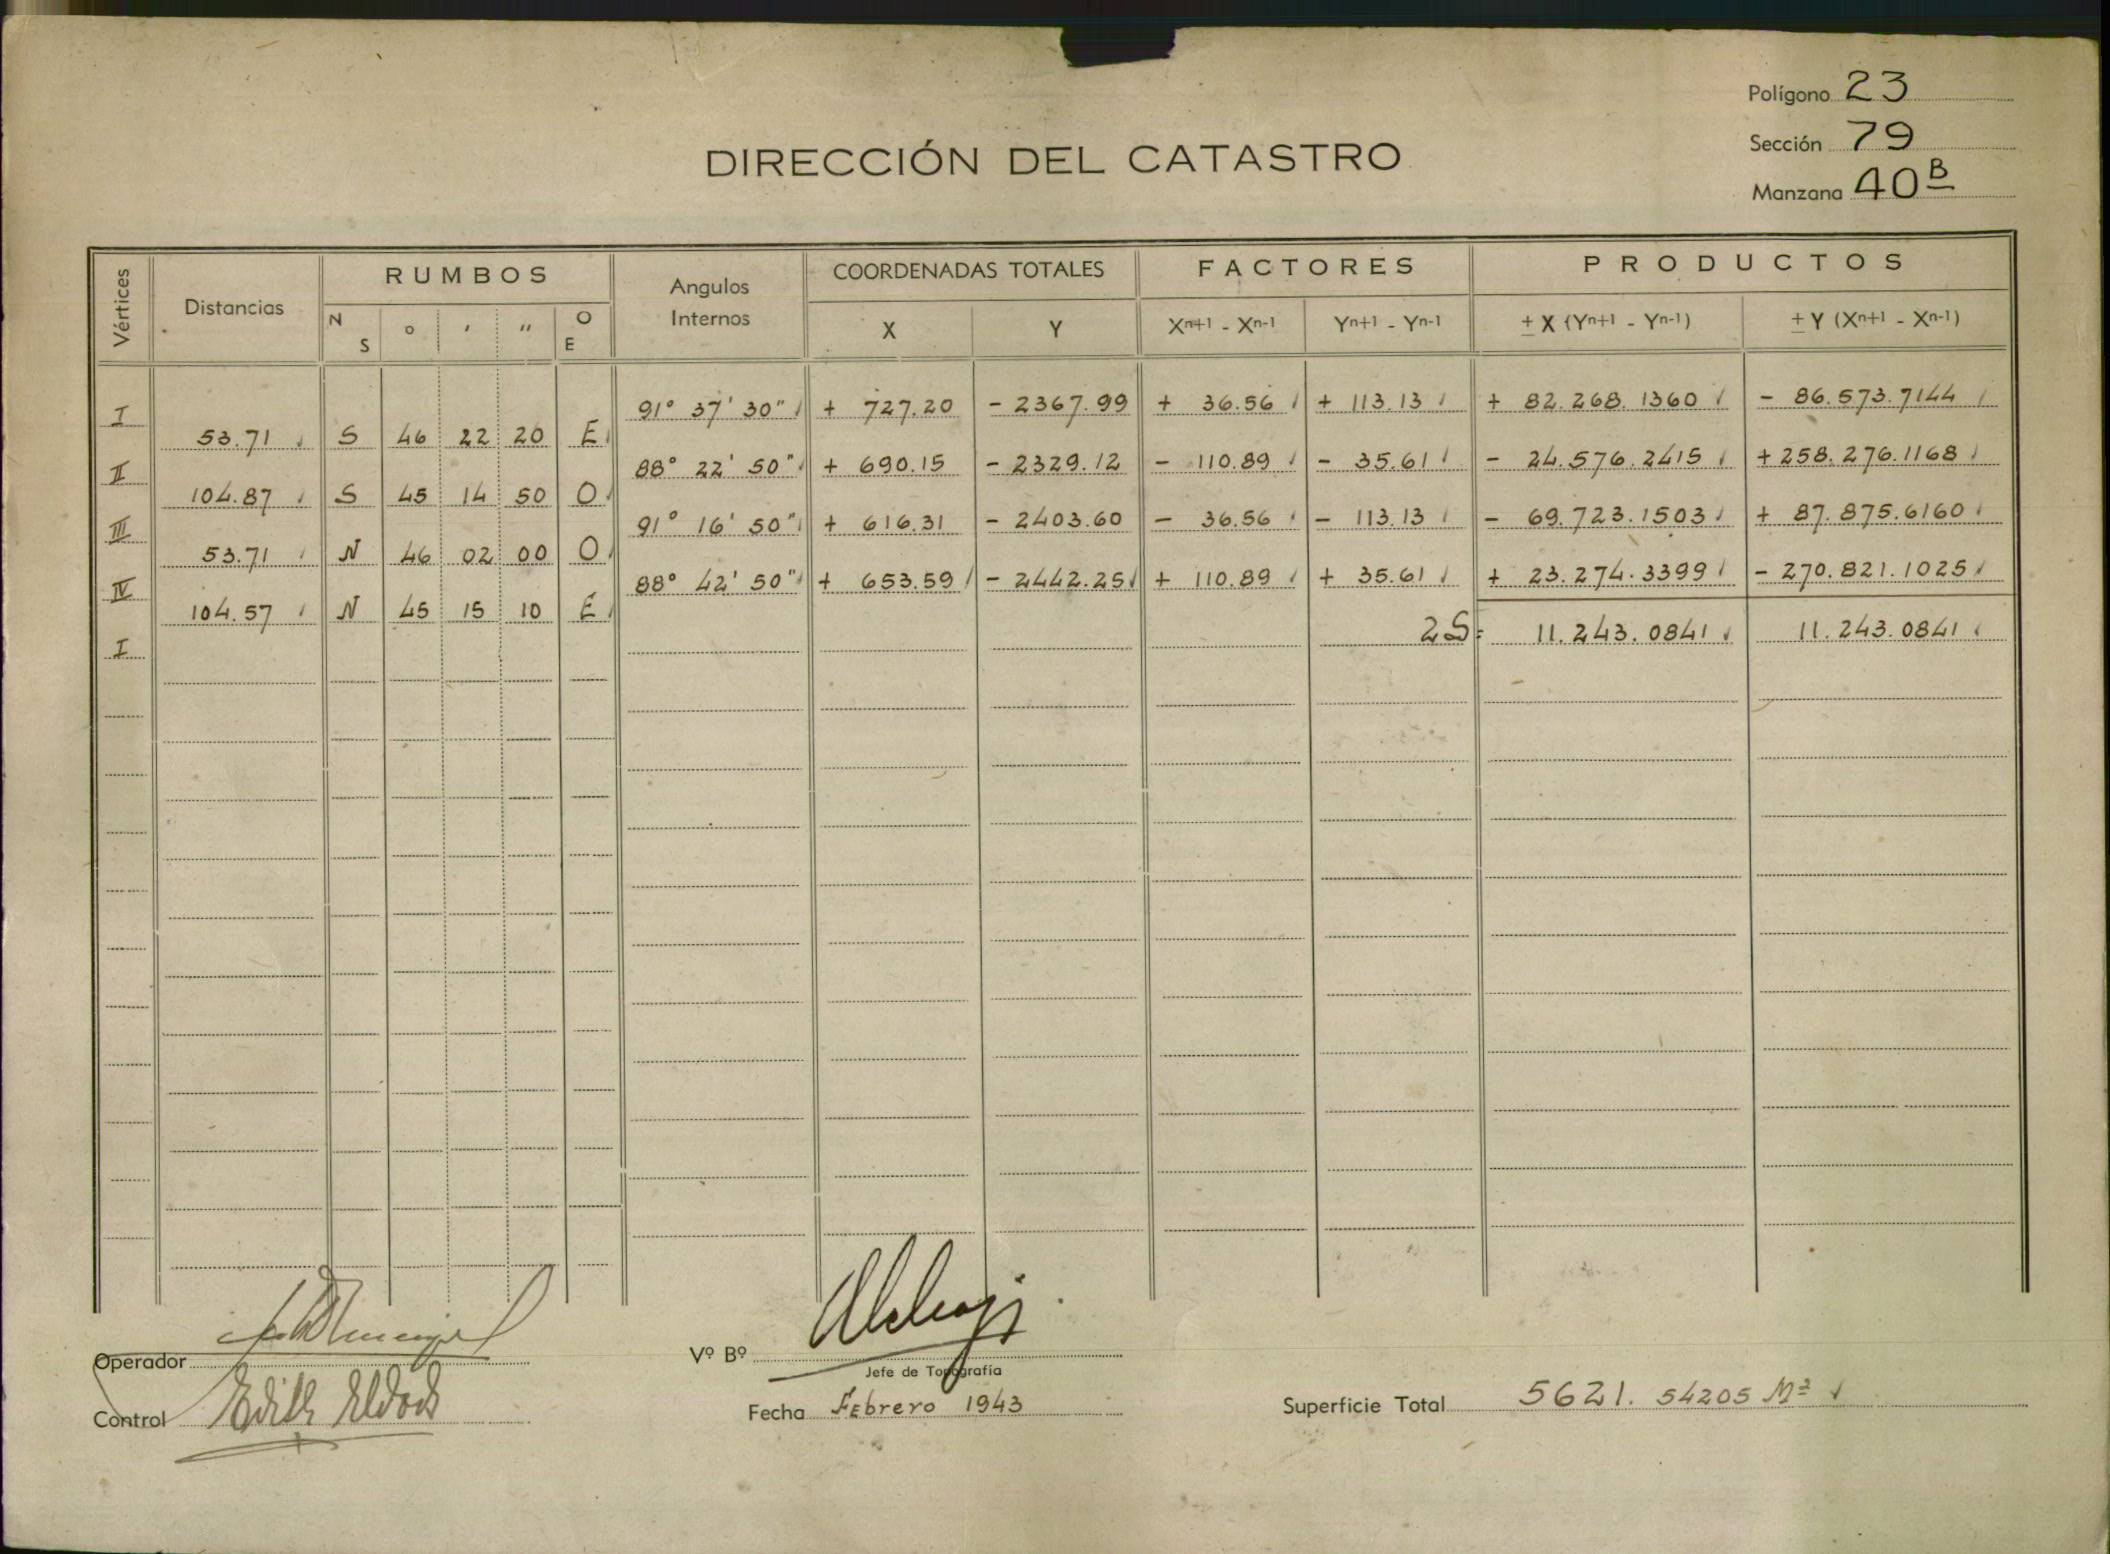 Polígono 23
Sección 79
Manzana 40 B
DIRECCIÓN DEL CATASTRO
Vértices Distancias RUMBOS Angulos Internos COORDENADAS TOTALES FACTORES PRODUCTOS
N S ° ' " O E X Y Xn+1 - Xn-1 Yn+1 - Yn-1 ± X (Yn+1 - Yn-1) ± Y (Xn+1 - Xn-1)
I 91° 37' 30" + 727.20 - 2367.99 + 36.56 + 113.13 + 82.268.1360 - 86.573.7144
53.71 S 46 22 20 E
II 88° 22' 50" + 690.15 - 2329.12 - 110.89 - 35.61 - 24.576.2415 + 258.276.1168
104.87 S 45 14 50 O
III 91° 16' 50" + 616.31 - 2403.60 - 36.56 - 113.13 - 69.723.1503 + 87.875.6160
53.71 N 46 02 00 O
IV 88° 42' 50" + 653.59 - 2442.25 + 110.89 + 35.61 + 23.274.3399 - 270.821.1025
104.57 N 45 15 10 E
I 2S= 11.243.0841 11.243.0841
Operador
Vº Bº
Jefe de Topografía
Control Edith
Fecha Febrero 1943
Superficie Total 5621.54205 M2